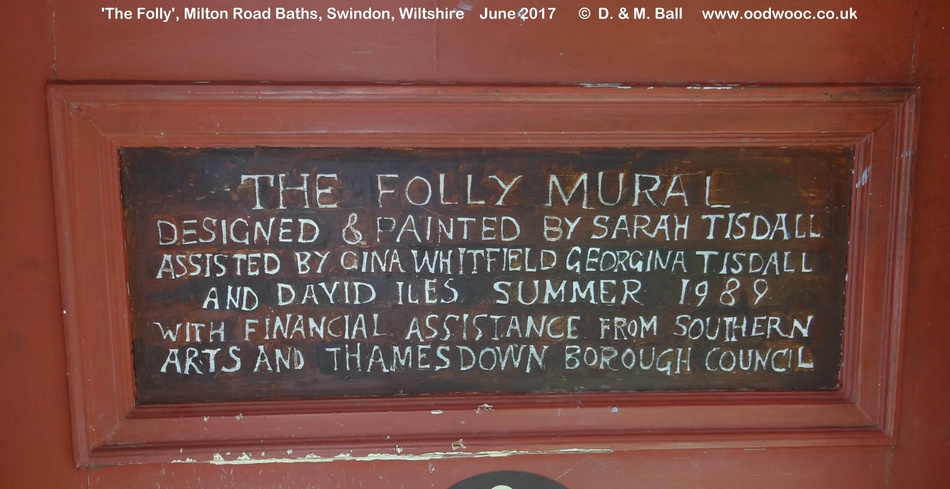 'The Folly', Milton Road Baths, Swindon, Wiltshire June 2017 © D. & M. Ball www.oodwooc.co.uk
THE FOLLY MURAL
DESIGNED & PAINTED BY SARAH TISDALL
ASSISTED BY GINA WHITFIELD GEORGINA TISDALL
AND DAVID ILES SUMMER 1989
WITH FINANCIAL ASSISTANCE FROM SOUTHERN
ARTS AND THAMESDOWN BOROUGH COUNCIL